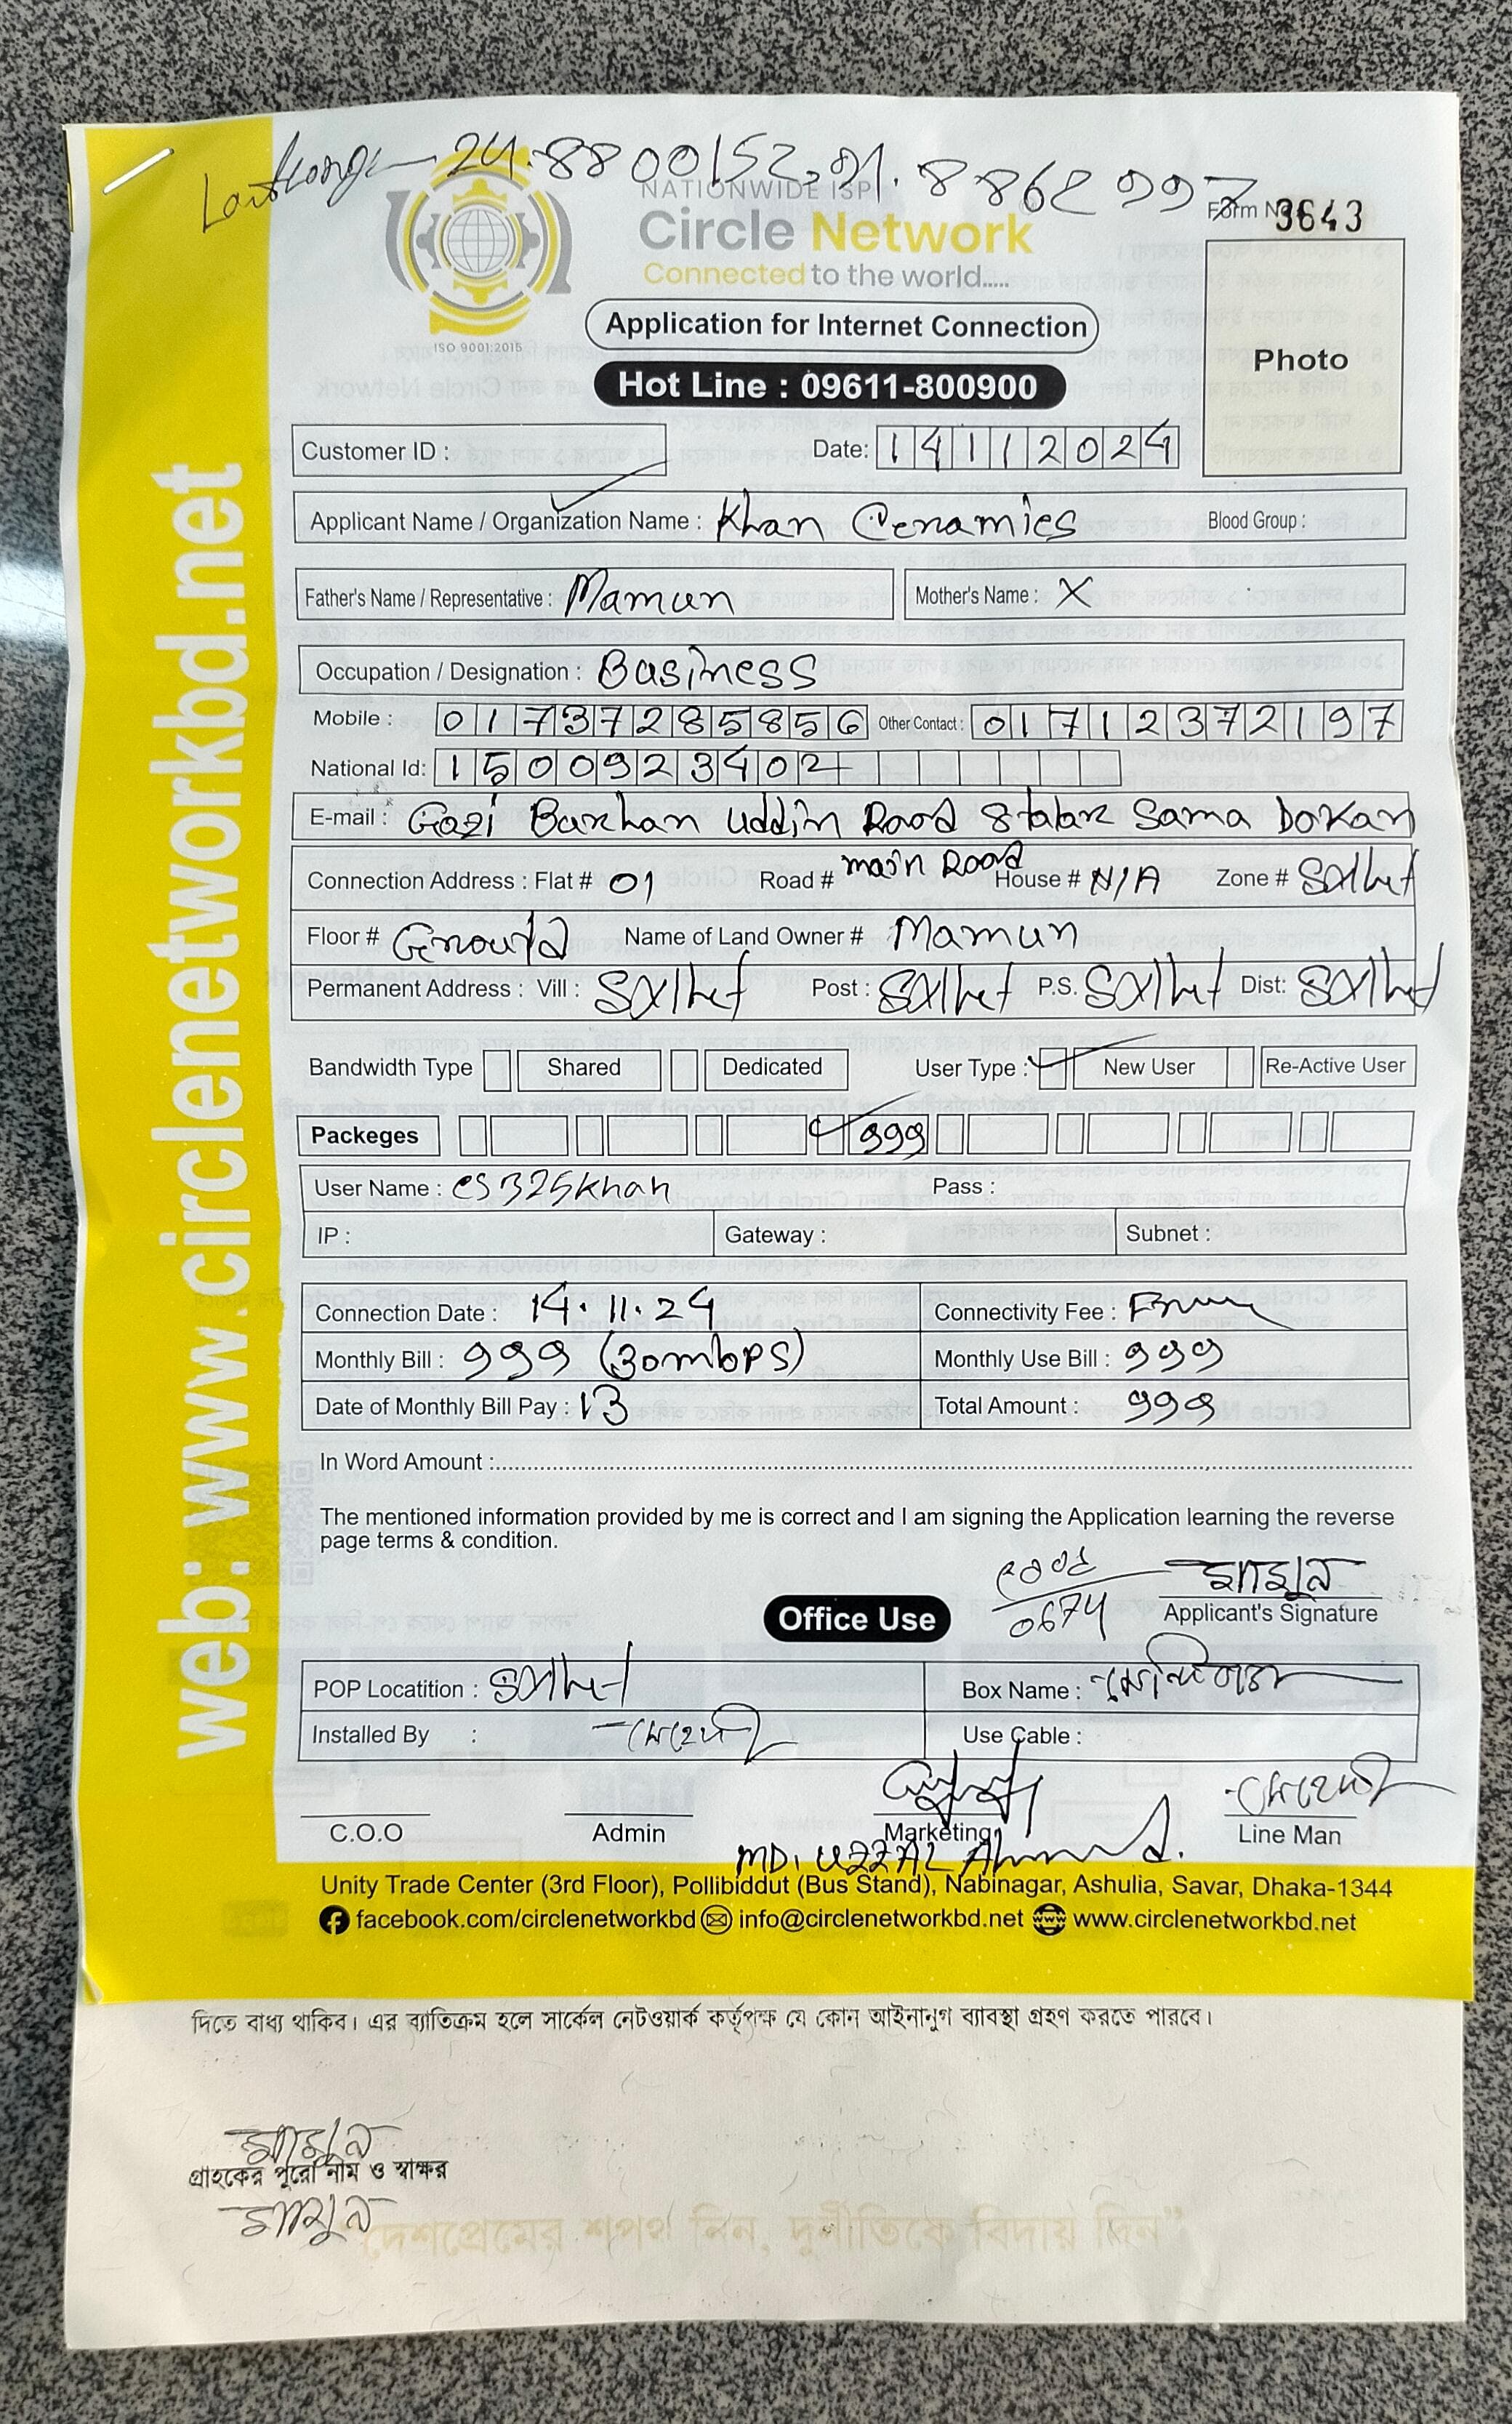 24.8800152,91.8862997
NATIONWIDE ISP
Form No 3643
Circle Network
Connected to the world.....
ISO 9001:2015
Application for Internet Connection
Photo
Hot Line : 09611-800900
Customer ID :
Date: 14112024
Applicant Name / Organization Name : Khan Ceramics Blood Group :
Father's Name / Representative : Mamun Mother's Name : X
Occupation / Designation : Business
Mobile : 01737285856 Other Contact : 01712372197
National Id: 1500923402
E-mail : Gazi Burhan Uddin Road Sama Dokan
Connection Address : Flat # 01 Road # main Road House # N/A Zone # Sylhet
Floor # Ground Name of Land Owner # Mamun
Permanent Address : Vill : Sylhet Post : Sylhet P.S. Sylhet Dist: Sylhet
Bandwidth Type Shared Dedicated User Type : New User Re-Active User
Packeges 999
User Name : cs325khan Pass :
IP : Gateway : Subnet :
Connection Date : 14.11.24 Connectivity Fee : Free
Monthly Bill : 999 (30mbps) Monthly Use Bill : 999
Date of Monthly Bill Pay : 13 Total Amount : 999
In Word Amount :
The mentioned information provided by me is correct and I am signing the Application learning the reverse
page terms & condition.
0674
মামুন
Office Use Applicant's Signature
POP Locatition : Sylhet Box Name :
Installed By : মেহেদী Use Cable :
মেহেদী
C.O.O Admin Marketing Line Man
MD. UZZAL Ahmed.
Unity Trade Center (3rd Floor), Pollibiddut (Bus Stand), Nabinagar, Ashulia, Savar, Dhaka-1344
facebook.com/circlenetworkbd info@circlenetworkbd.net www.circlenetworkbd.net
web: www.circlenetworkbd.net
দিতে বাধ্য থাকিব। এর ব্যাতিক্রম হলে সার্কেল নেটওয়ার্ক কর্তৃপক্ষ যে কোন আইনানুগ ব্যাবস্থা গ্রহণ করতে পারবে।
মামুন
গ্রাহকের পুরো নাম ও স্বাক্ষর
মামুন
“দেশপ্রেমের শপথ নিন, দুর্নীতিকে বিদায় দিন”